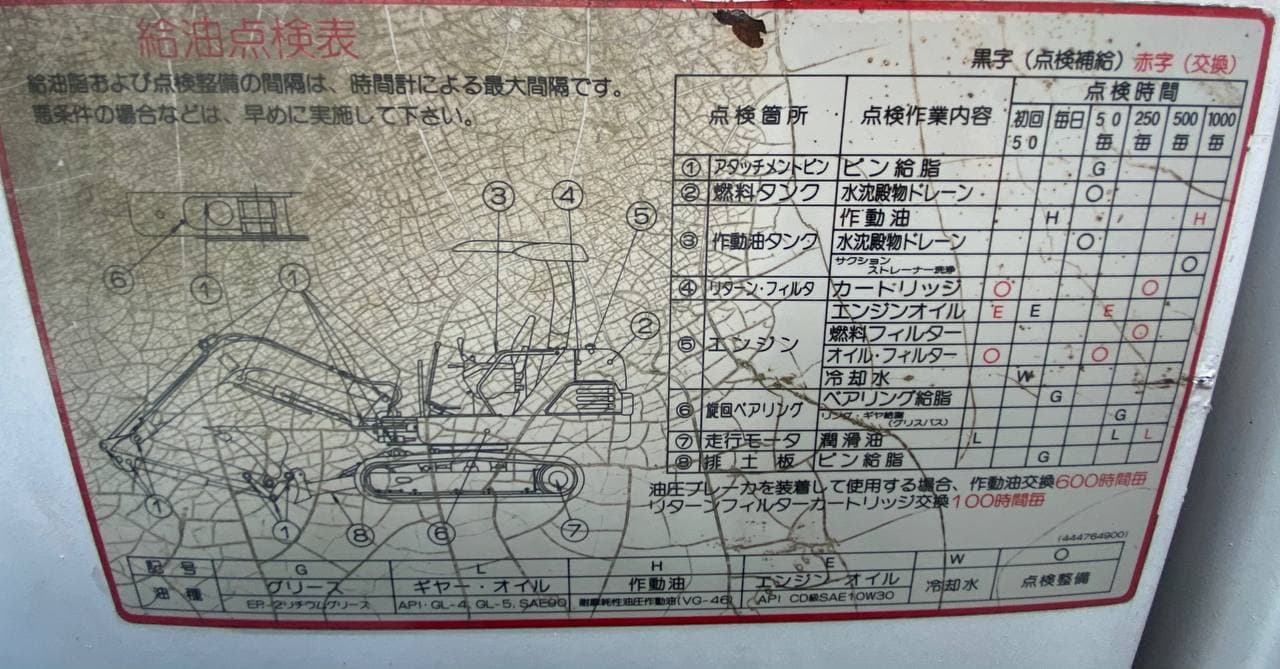 給油点検表
給油脂および点検整備の間隔は、時間計による最大間隔です。
悪条件の場合などは、早めに実施して下さい。
黒字（点検補給）赤字（交換）
点検箇所 点検作業内容 点検時間
初回50 毎日 50毎 250毎 500毎 1000毎
① アタッチメントピン ピン給脂 G
② 燃料タンク 水沈殿物ドレーン ○
③ 作動油タンク 作動油 H H
水沈殿物ドレーン ○
サクションストレーナー洗浄 ○
④ リターン・フィルタ カートリッジ ○ ○
⑤ エンジン エンジンオイル E E E
燃料フィルター ○
オイル・フィルター ○ ○
冷却水 W
⑥ 旋回ベアリング ベアリング給脂 G
リング・ギヤ給脂（グリスバス） G
⑦ 走行モータ 潤滑油 L L L
⑧ 排土板 ピン給脂 G
油圧ブレーカを装着して使用する場合、作動油交換600時間毎
リターンフィルターカートリッジ交換100時間毎
(444764900)
③ ④ ⑤
⑥ ① ①
②
① ① ⑧ ⑥ ⑦
記号 G L H E W ○
油種 グリース ギヤー・オイル 作動油 エンジンオイル 冷却水 点検整備
EP-2リチウムグリース API・GL-4, GL-5, SAE90 耐摩耗性油圧作動油(VG-46) API CD級SAE10W30